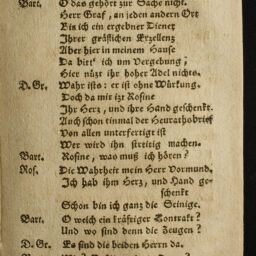 Bart. O das gehört zur Sache nicht.
Herr Graf, an jeden andern Ort
Bis ich ein ergebner Diener
Ihrer gräflichen Exzellenz
Aber hier in meinem Hause
Da bitt' ich um Vergebung;
Hier nüzt ihr hoher Adel nichts.
D. Gr. Wahr ists: er ist ohne Würkung.
Doch da mir izt Rosine
Ihr Herz, und ihre Hand geschenkt.
Auch schon einmal der Heurathsbrief
Von allen unterfertigt ist
Wer wird ihn streitig machen.
Bart. Rosine, was muß ich hören?
Ros. Die Wahrheit mein Herr Vormund.
Ich hab ihm Herz, und Hand ge-
schenkt
Schon bin ich ganz die Seinige.
Bart. O welch ein kräftiger Kontrakt?
Und wo sind denn die Zeugen?
D. Gr. Es sind die beiden Herrn da.